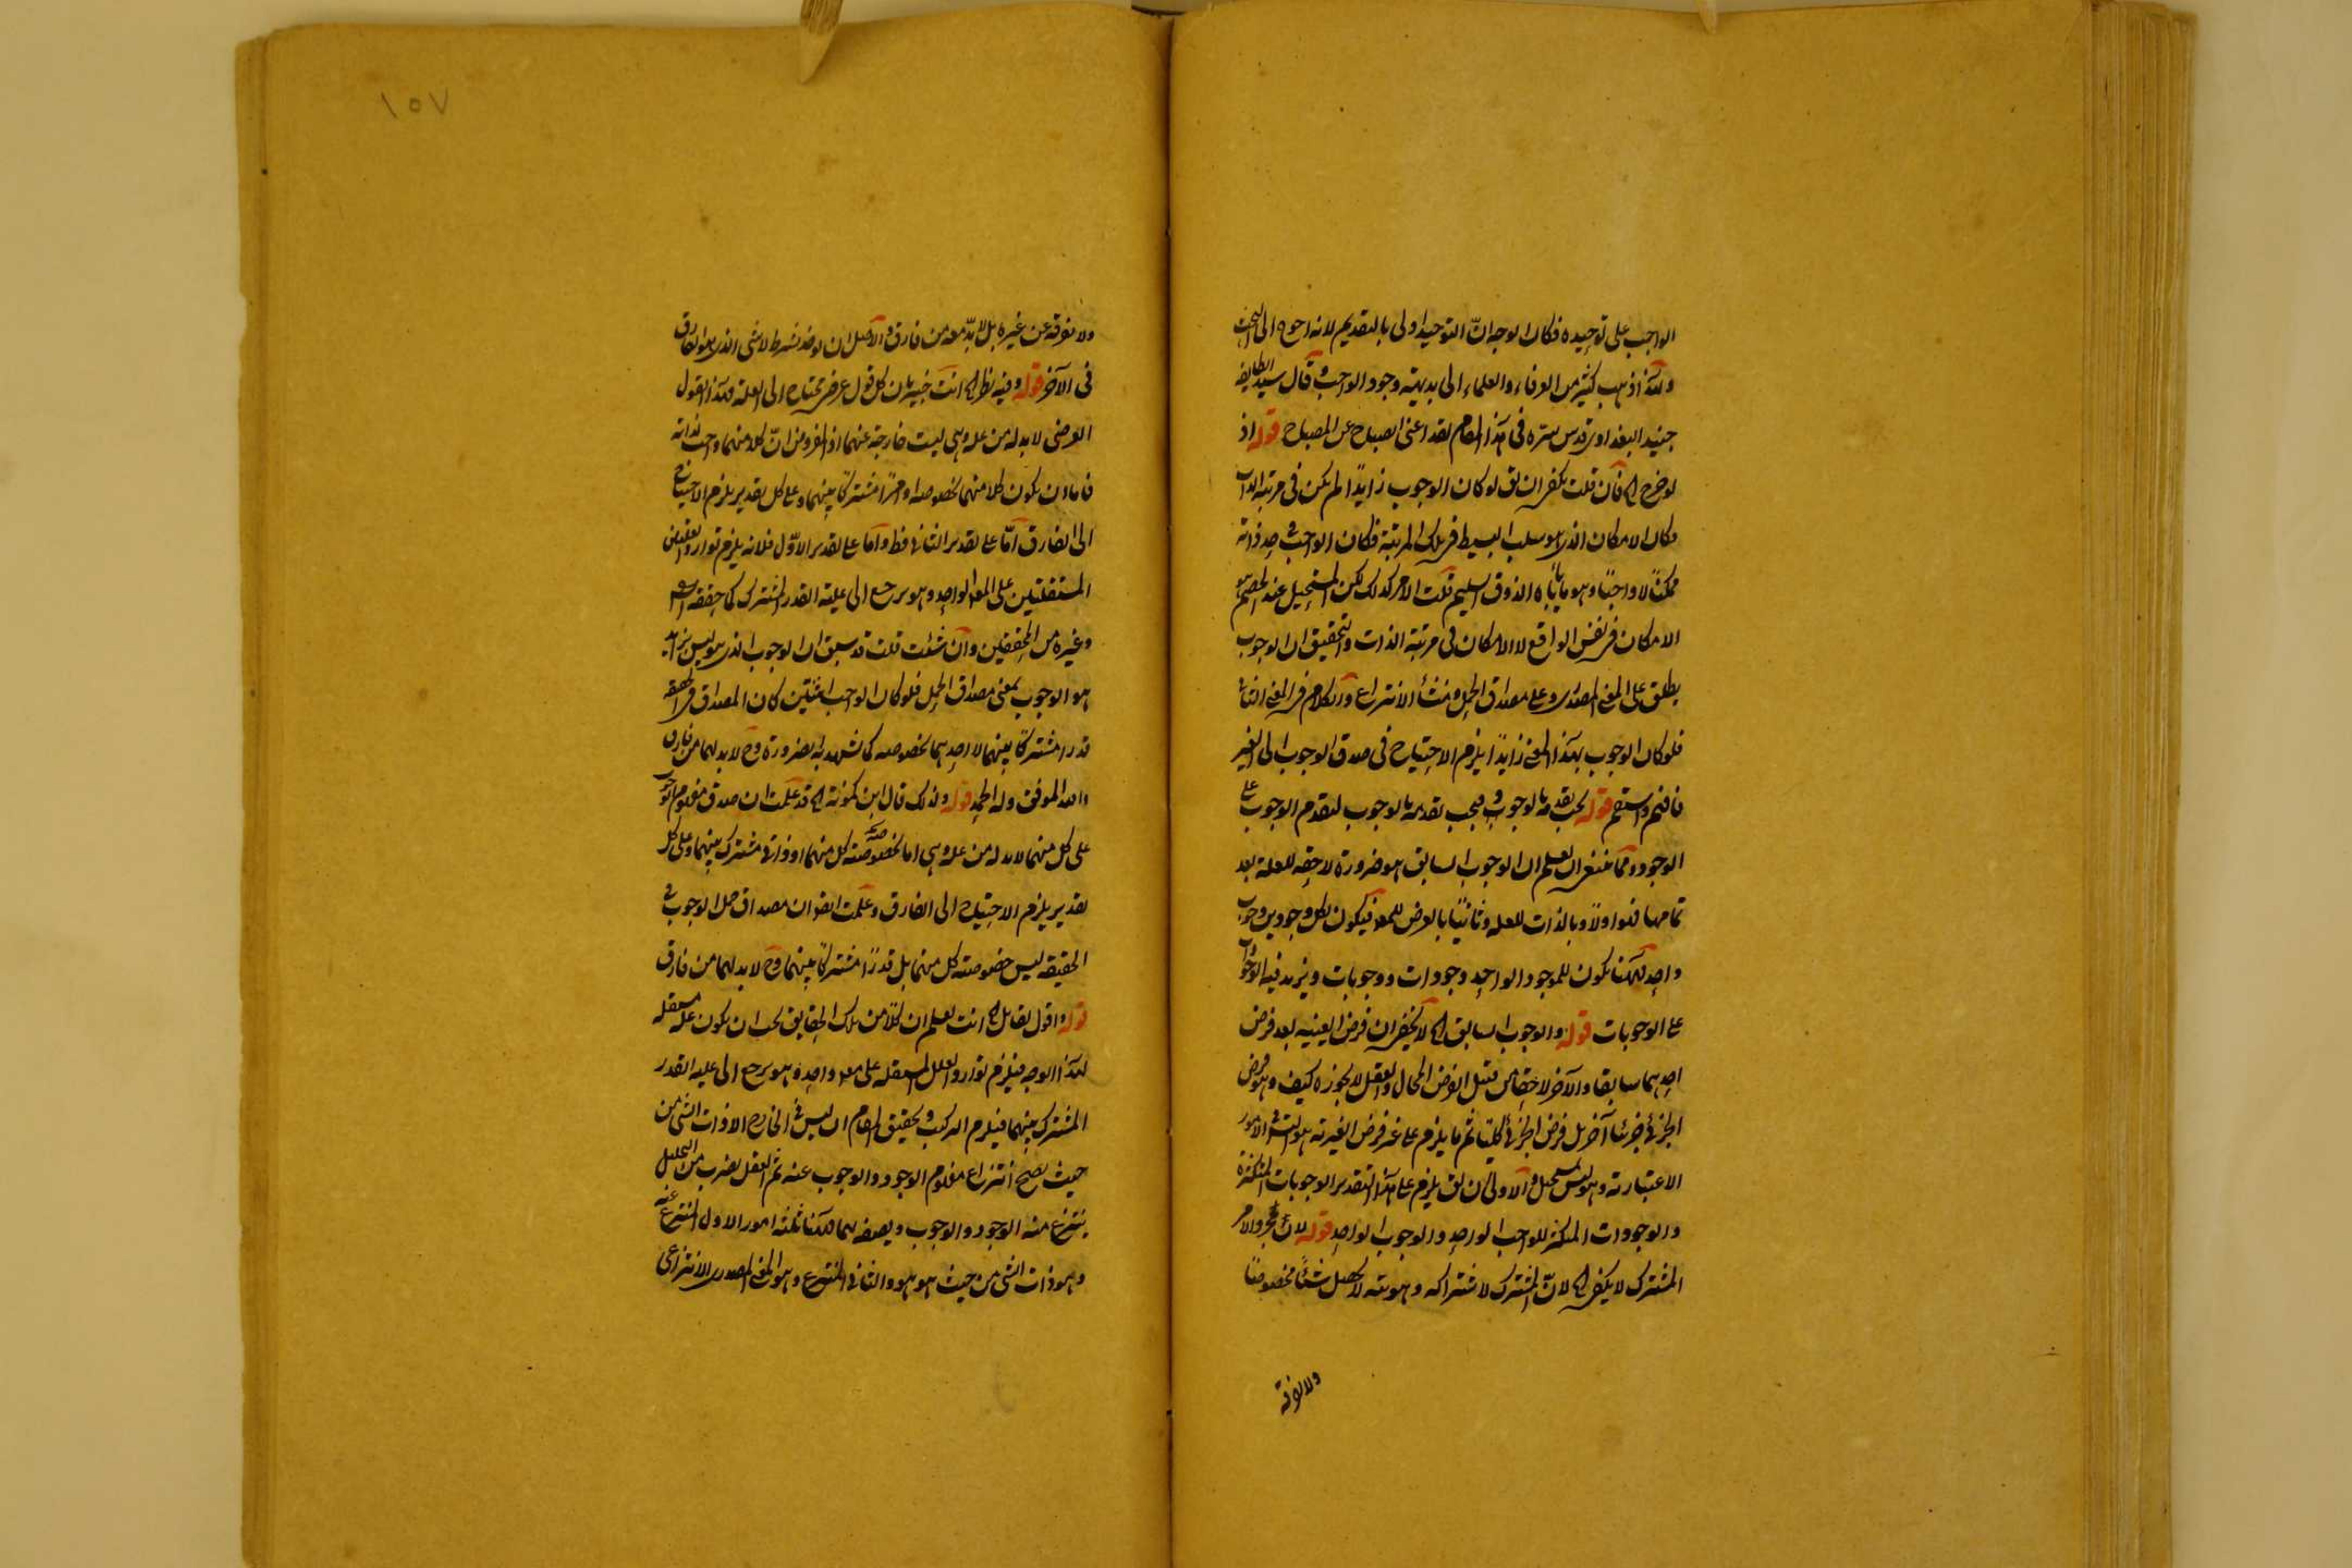 الواجب على توحيده فكان الوجه انّ التوحيد اولى بالتقديم لانه احوج الى البحث
ولهذا ذهب كثير من العرفاء والعلماء الى بديهية وجود الواجب و قال سيد الطايفة
جنيد البغدادى قدس سره فى هذا المقام لقد اغنى الصباح عن المصباح قوله اذ
لو خرج الخ فان قلت يكفى ان يق لو كان الوجوب زايدًا لم يكن فى مرتبة الذات
فكان الامكان الذى هو سلب البسيط فى تلك المرتبة فكان الواجب فى حد ذاته
ممكنًا لا واجبًا وهو ما يأباه الذوق السليم قلت الامر كذلك لكن المستحيل عند الخصم هو
الامكان فى نفس الواقع لا الامكان فى مرتبة الذات والتحقيق ان الوجوب
يطلق على المعنى المصدرى وعلى مصداق الحمل ومنشأ الانتزاع والكلام فى المعنى الثانى
فلو كان الوجوب بهذا المعنى زايدًا يلزم الاحتياج فى صدق الوجوب الى الغير
فافهم واستقم قوله يجب تقدمه بالوجوب و يجب تقديره بالوجوب لتقدم الوجوب على
الوجود ومما ينبغى ان يعلم ان الوجوب السابق هو ضرورة لاحقة للعلة بعد
تمامها فهو اولًا وبالذات للعلة وثانيًا بالعرض للمعلول فيكون لكل وجودين وجوب
واحد لكن يكون للموجود الواحد وجودات ووجوبات ويزيد فيه الوجودات
على الوجوبات قوله والوجوب السابق الخ لا يخفى ان فرض العينيه بعد فرض
احدهما سابقا والآخر لاحقا من قبيل الفرض المحال والعقل لا يجوزه كيف وهو فرض
الجزئى جزئيًا آخر بل فرض الجزئى كليًا ثم ما يلزم على غير فرض الغيرية هو التس فى الامور
الاعتبارية وهو ليس بمستحيل والاولى ان يق يلزم على هذا التقدير الوجوبات المتكثرة
والوجودات المتكثرة للواجب الواحد والوجوب الواحد قوله لان مجرد الامر
المشترك لا يكفى الخ لانّ المشترك لاشتراكه وهويته لا يحصل شيئًا مخصوصًا
ولا يفرقه
١٥٧
ولا يفرقه عن غيره بل لا بدّ معه من فارق والاصل ان يوخذ بشرط لا شى الذى هو الفارق
فى الآخر قوله وفيه نظر الخ انت خبير بان كل قول عرضى محتاج الى العلة وهذا القول
العرضى لا بد له من علة وهى ليست خارجة عنهما اذ المفروض انّ كلا منهما واجب لذاته
فاما ان يكون كلا منهما بخصوصه او امرًا مشتركًا بينهما وعلى كل تقدير يلزم الاحتياج
الى الفارق امّا على تقدير الثانى فظ واما على تقدير الاوّل فلانه يلزم توارد العلتين
المستقلتين على المعلول الواحد وهو يرجع الى علية القدر المشترك كما حققه
وغيره من المحققين وان شئت قلت قد سبق ان الوجوب الذى هو ليس بزايد
هو الوجوب بمعنى مصداق الحمل فلو كان الواجب اثنين كان المصداق فى الحقيقة
قدرا مشتركًا بينهما لا احدهما بخصوصه كما شهد به الضرورة وح لا بد لهما من فارق
والله الموفق وله الحمد قوله ولذلك قال ابن كمونة الخ قد علمت ان صدق مفهوم الوجوب
على كل منهما لا بد له من علة وهى اما خصوصية كل منهما او ذاتى مشترك بينهما وعلى كل
تقدير يلزم الاحتياج الى الفارق وعلمت ايضا ان مصداق حمل الوجوب فى
الحقيقة ليس خصوصية كل منهما بل قدرًا مشتركًا بينهما وح لا بد لهما من فارق
قوله واقول لقائل الخ انت تعلم ان كلًا من تلك الحقايق يجب ان يكون علة مستقلة
لهذا الوجه فيلزم توارد العلل المستقلة على معلول واحد وهو يرجع الى علية القدر
المشترك بينهما فيلزم التركيب و تحقيق المقام ان ليس فى الخارج الا ذات الشى من
حيث يصح انتزاع مفهوم الوجود والوجوب عنه ثم العقل بضرب من التحليل
ينتزع منه الوجود والوجوب ويصفه بهما فههنا ثلثة امور الاول المنتزع عنه
وهو ذات الشى من حيث هو هو والثانى المنتزع وهو المعنى المصدرى الانتزاعى